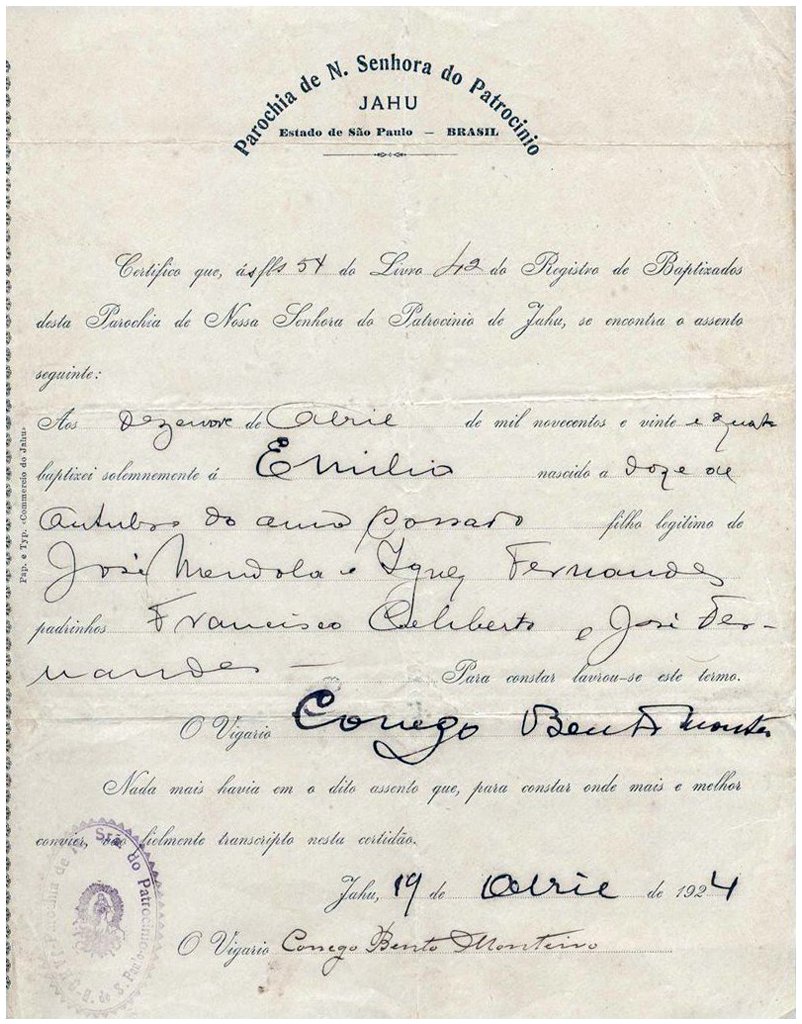 Parochia de N. Senhora do Patrocinio
JAHU
Estado de São Paulo — BRASIL
Certifico que, ás fls 54 do Livro 42 do Registro de Baptizados
desta Parochia de Nossa Senhora do Patrocinio de Jahu, se encontra o assento
seguinte:
Aos dezenove de Abril de mil novecentos e vinte e quatro
baptizei solemnemente á Emilio nascido a doze de
Outubro do anno passado filho legitimo de
José Mendola e Ignez Fernandes
padrinhos Francisco Celiberto e José Fer-
nandes — Para constar lavrou-se este termo.
O Vigario Conego Bento Monteiro
Nada mais havia em o dito assento que, para constar onde mais e melhor
convier, vão fielmente transcripto nesta certidão.
Jahu, 19 de Abril de 1924
O Vigario Conego Bento Monteiro
Pap. e Typ. «Commercio do Jahu»
Parochia de N. Sra. do Patrocinio
S. Paulo